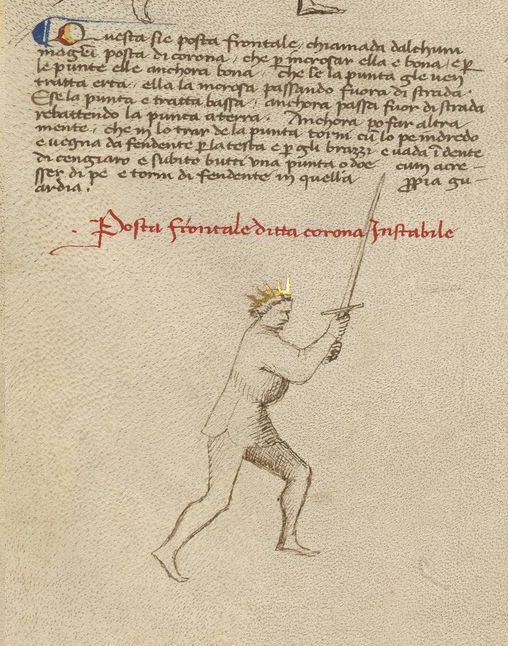 Questa sie posta frontale, chiamada dalchun
magistri posta di corona, che p incrosar ella e bona, e p
le punte elle anchora bona, che se la punta gle uen
tratta erta, ella la incrosa passando fuora di strada.
E se la punta e tratta bassa, anchora passa fuor di strada
rebattendo la punta a terra. Anchora po far altra
mente, che in lo trar de la punta torni cū lo pe indredo
e uegna da fendente p la testa e p gli brazzi e uada ī dente
di cengiaro e subito butti una punta o doe cum acre-
sser di pe e torni di fendente in quella ppia gu-
ardia.
Posta frontale ditta corona Instabile